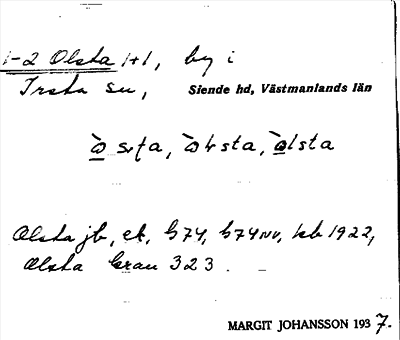 1-2 Olsta 1+1, by i
Irsta sn, Siende hd, Västmanlands län
Olsta jb, ek, G74, G74NV, kb 1922,
Ølsta Gran 323.
MARGIT JOHANSSON 1937.